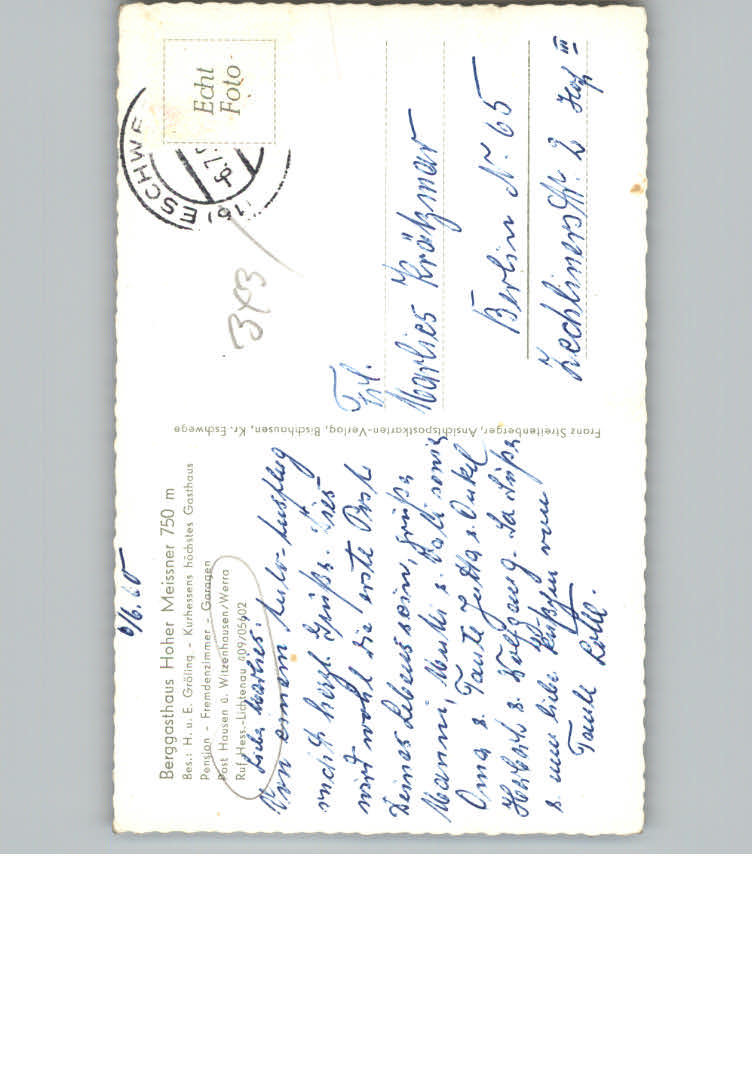 Berggasthaus Hoher Meissner 750 m
Bes.: H. u. E. Gröling - Kurhessens höchstes Gasthaus
Pension - Fremdenzimmer - Garagen
Post Hausen ü. Witzenhausen/Werra
Ruf Hess.-Lichtenau 409/05602
6/6.60
Liebe Marlies.
Von einem Auto-Ausflug
recht herzl. Grüße. Dies
wird wohl die erste Post
Deines Lebens sein, grüße
Manni, Mutti u. Vati sowie
Oma u. Tante Jutta u. Onkel
Herbert u. Wolfgang. Sei
u. nun liebe Küßchen von
Tante Lotte.
Franz Streitenberger, Ansichtspostkarten-Verlag, Bischhausen, Kr. Eschwege
Echt
Foto
(16) ESCHWE
3x3
Frl.
Marlies Krätzmar
Berlin N. 65
Zechlinerstr. 2 Hof III